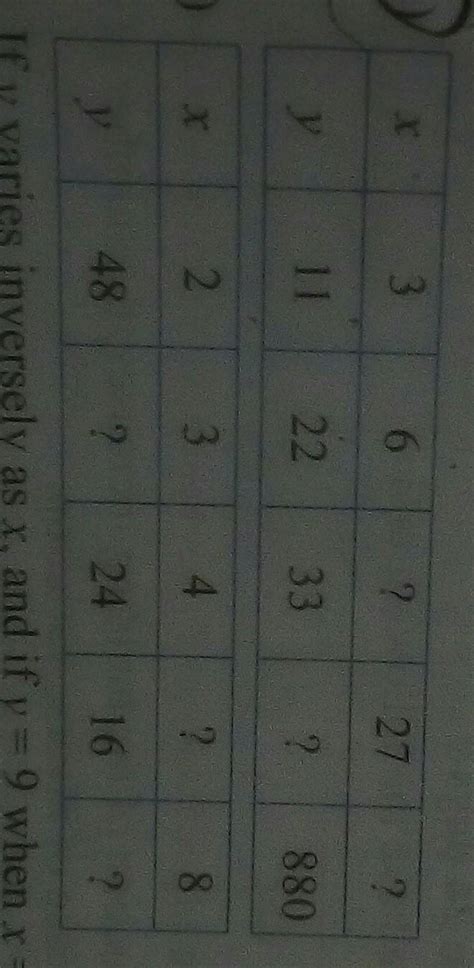 x 3 6 ? 27 ?
y 11 22 33 ? 880
x 2 3 4 ? 8
y 48 ? 24 16 ?
If y varies inversely as x, and if y = 9 when x =